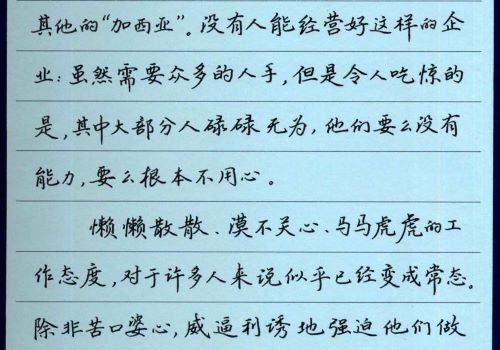 其他的“加西亚”。没有人能经营好这样的企
业：虽然需要众多的人手，但是令人吃惊的
是，其中大部分人碌碌无为，他们要么没有
能力，要么根本不用心。
懒懒散散、漠不关心、马马虎虎的工
作态度，对于许多人来说似乎已经变成常态。
除非苦口婆心，威逼利诱地强迫他们做